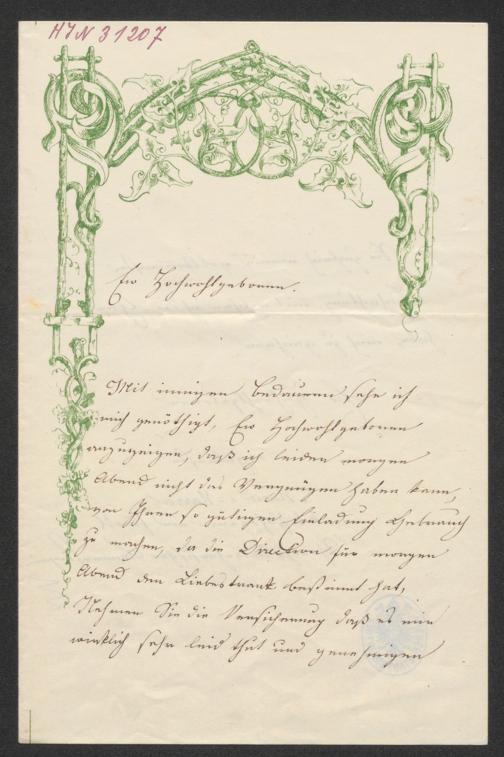 HIN 31207
Ew Hochwohlgeboren.
Mit innigen Bedauern sehe ich
mich genöthigt, Ew Hochwohlgeboren
anzuzeigen, daß ich leider morgen
Abend nicht das Vergnügen haben kann,
von Ihrer so gütigen Einladung Gebrauch
zu machen, da die Direction für morgen
Abend den Liebestrank bestimmt hat,
Nehmen Sie die Versicherung daß es mir
wirklich sehr leid thut und genehmigen